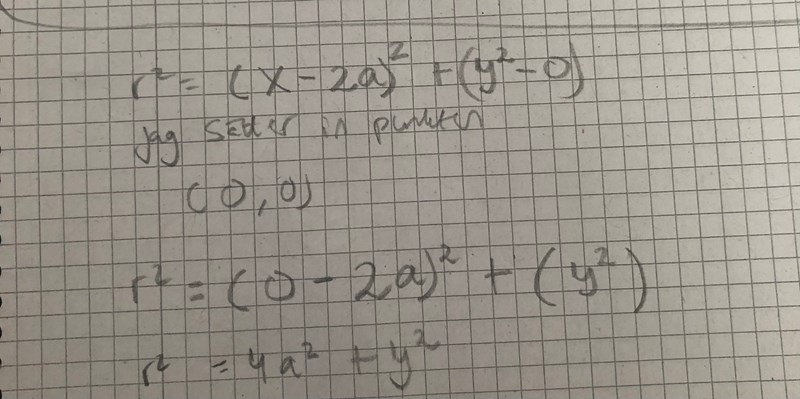 r² = (x - 2a)² + (y² - 0)
jag sätter in punkten
(0,0)
r² = (0 - 2a)² + (y²)
r² = 4a² + y²